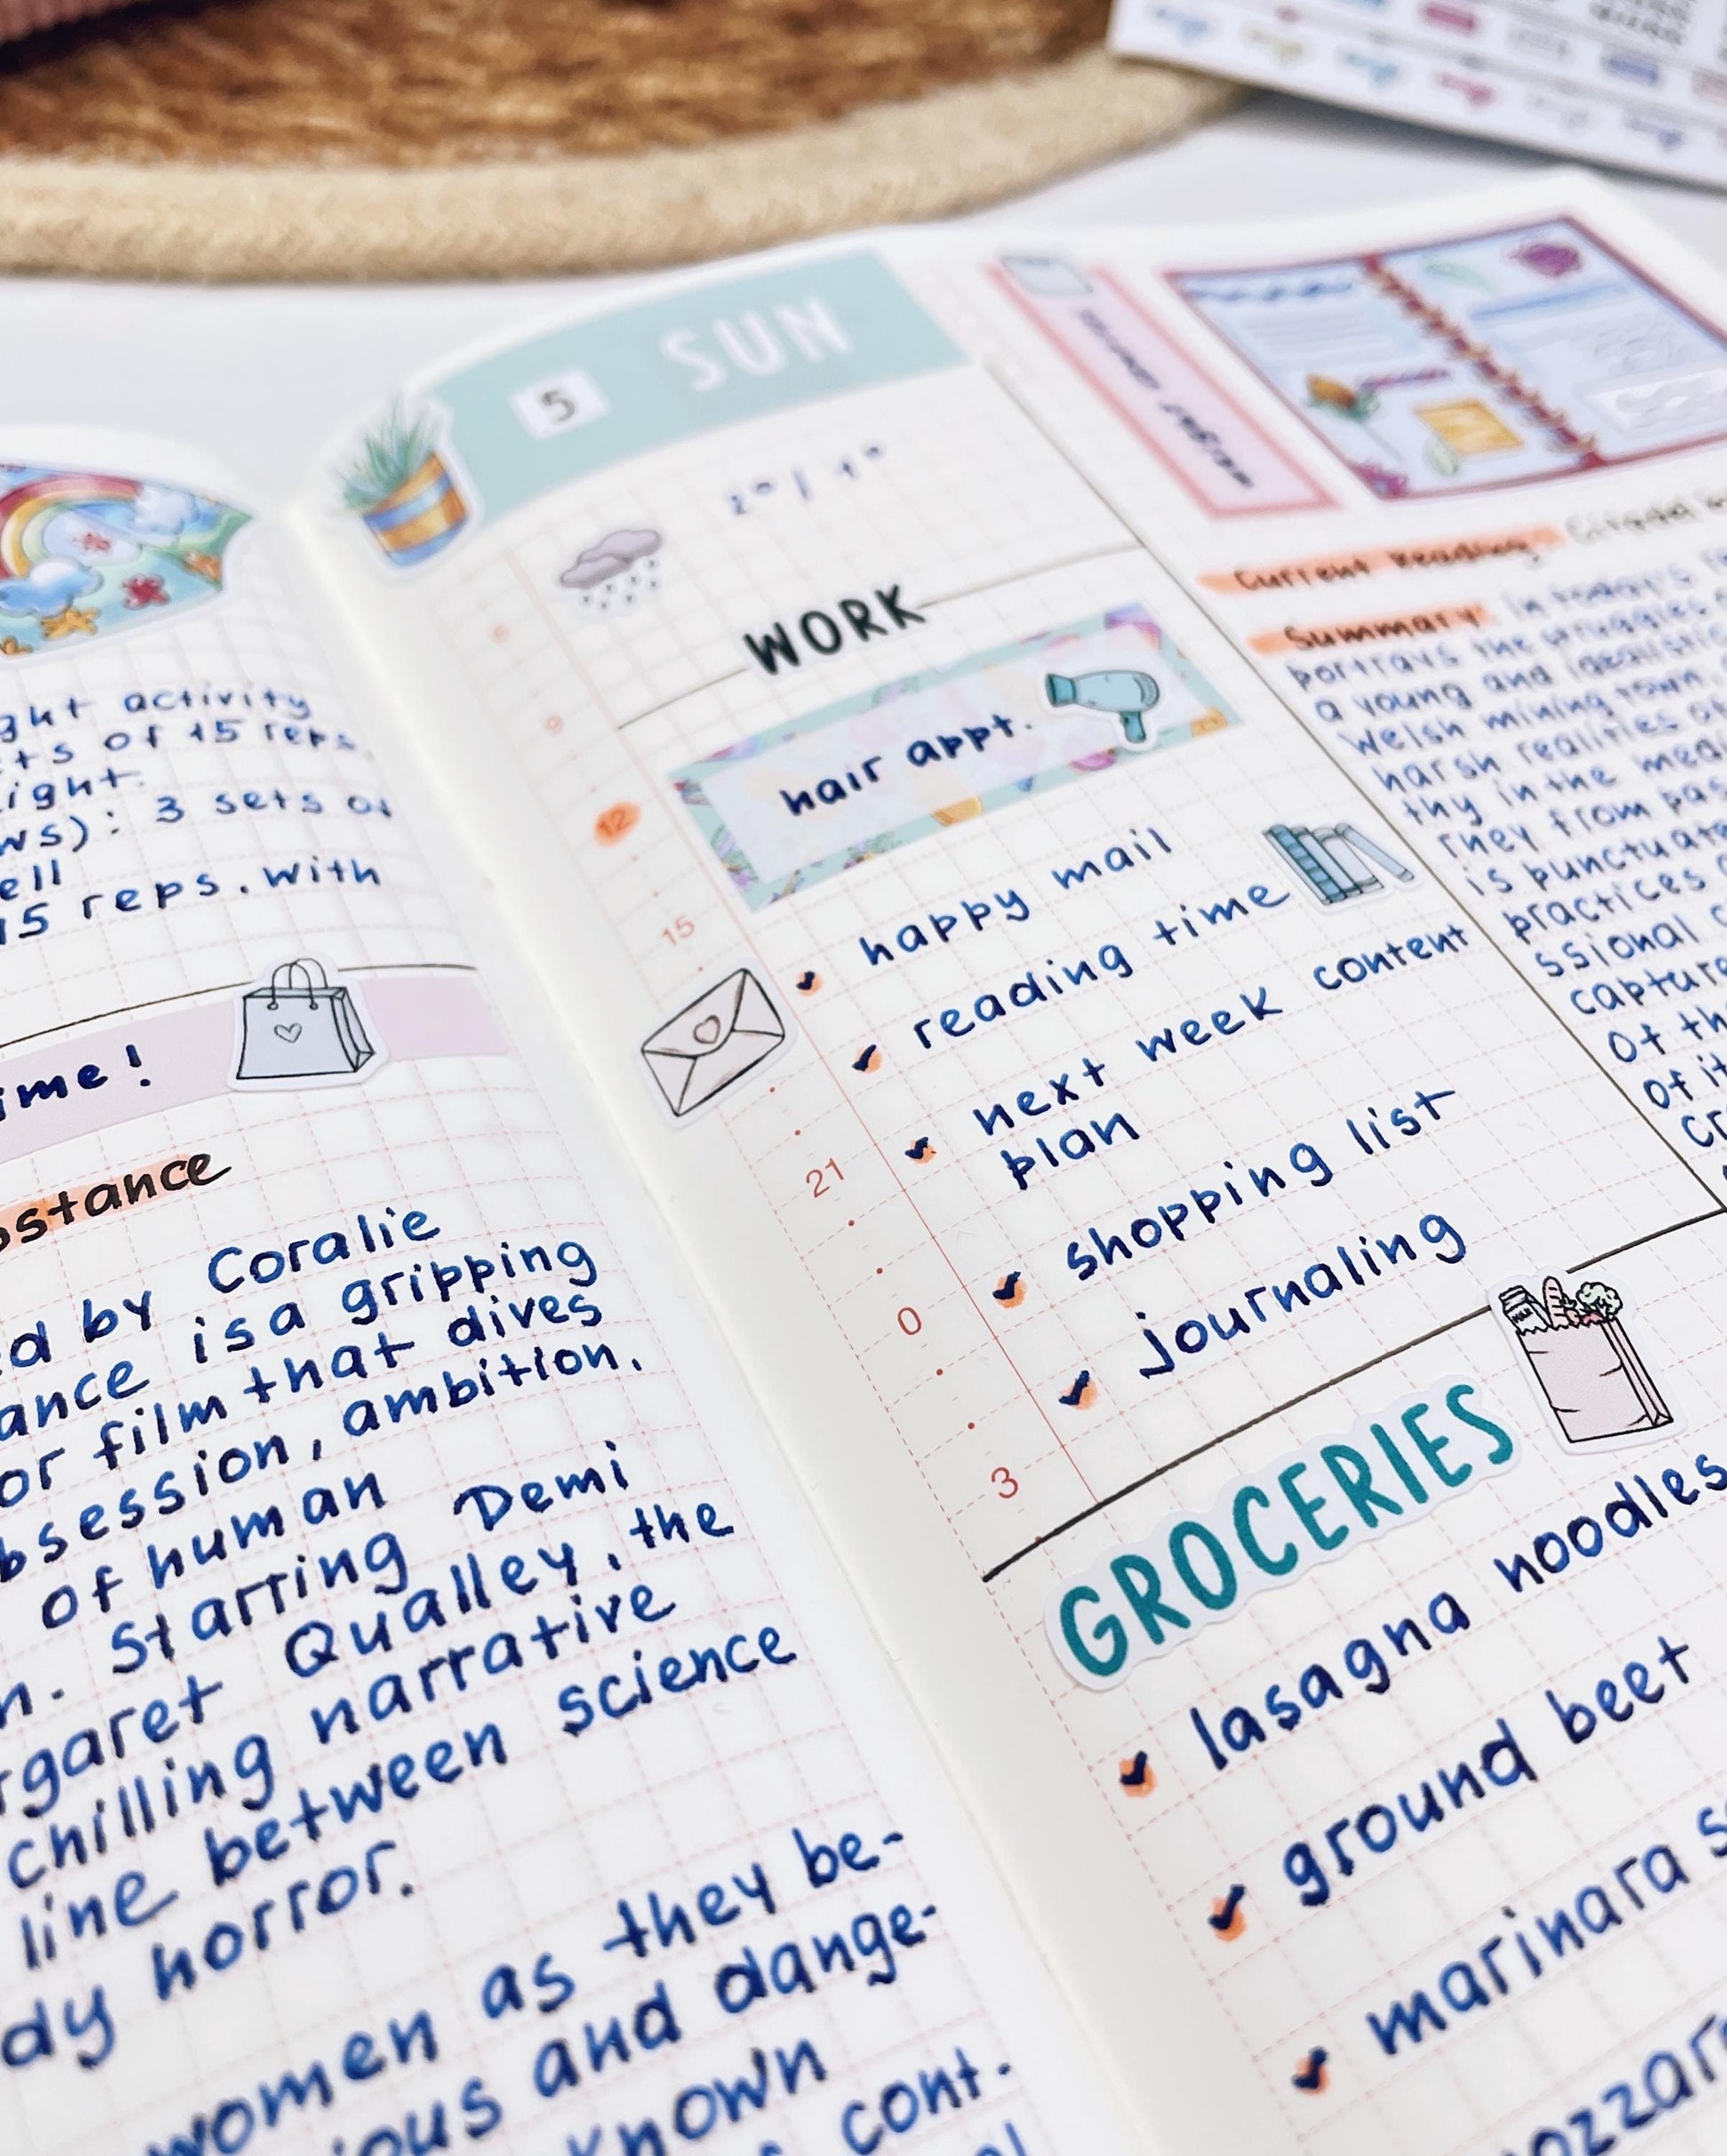 ght activity
ts of 15 reps.
ight.
ws): 3 sets of
ell
15 reps. with
ime!
stance
ed by Coralie
ance is a gripping
or film that dives
bsession, ambition,
of human
n. Starring Demi
rgaret Qualley, the
chilling narrative
line between science
dy horror.
women as they be-
ious and dange-
known
cont.
5 SUN
WORK
hair appt.
6
9
12
15
21
0
3
happy mail
reading time
next week content
plan
shopping list
journaling
GROCERIES
lasagna noodles
ground beet
marinara s
ozzar
Current Reading: Citadel
Summary: In today's
portrays the struggles
a young and idealistic
Welsh mining town.
harsh realities of
thy in the medi
rney from pas
is punctuate
practices
ssional c
capture
of th
of it
cr